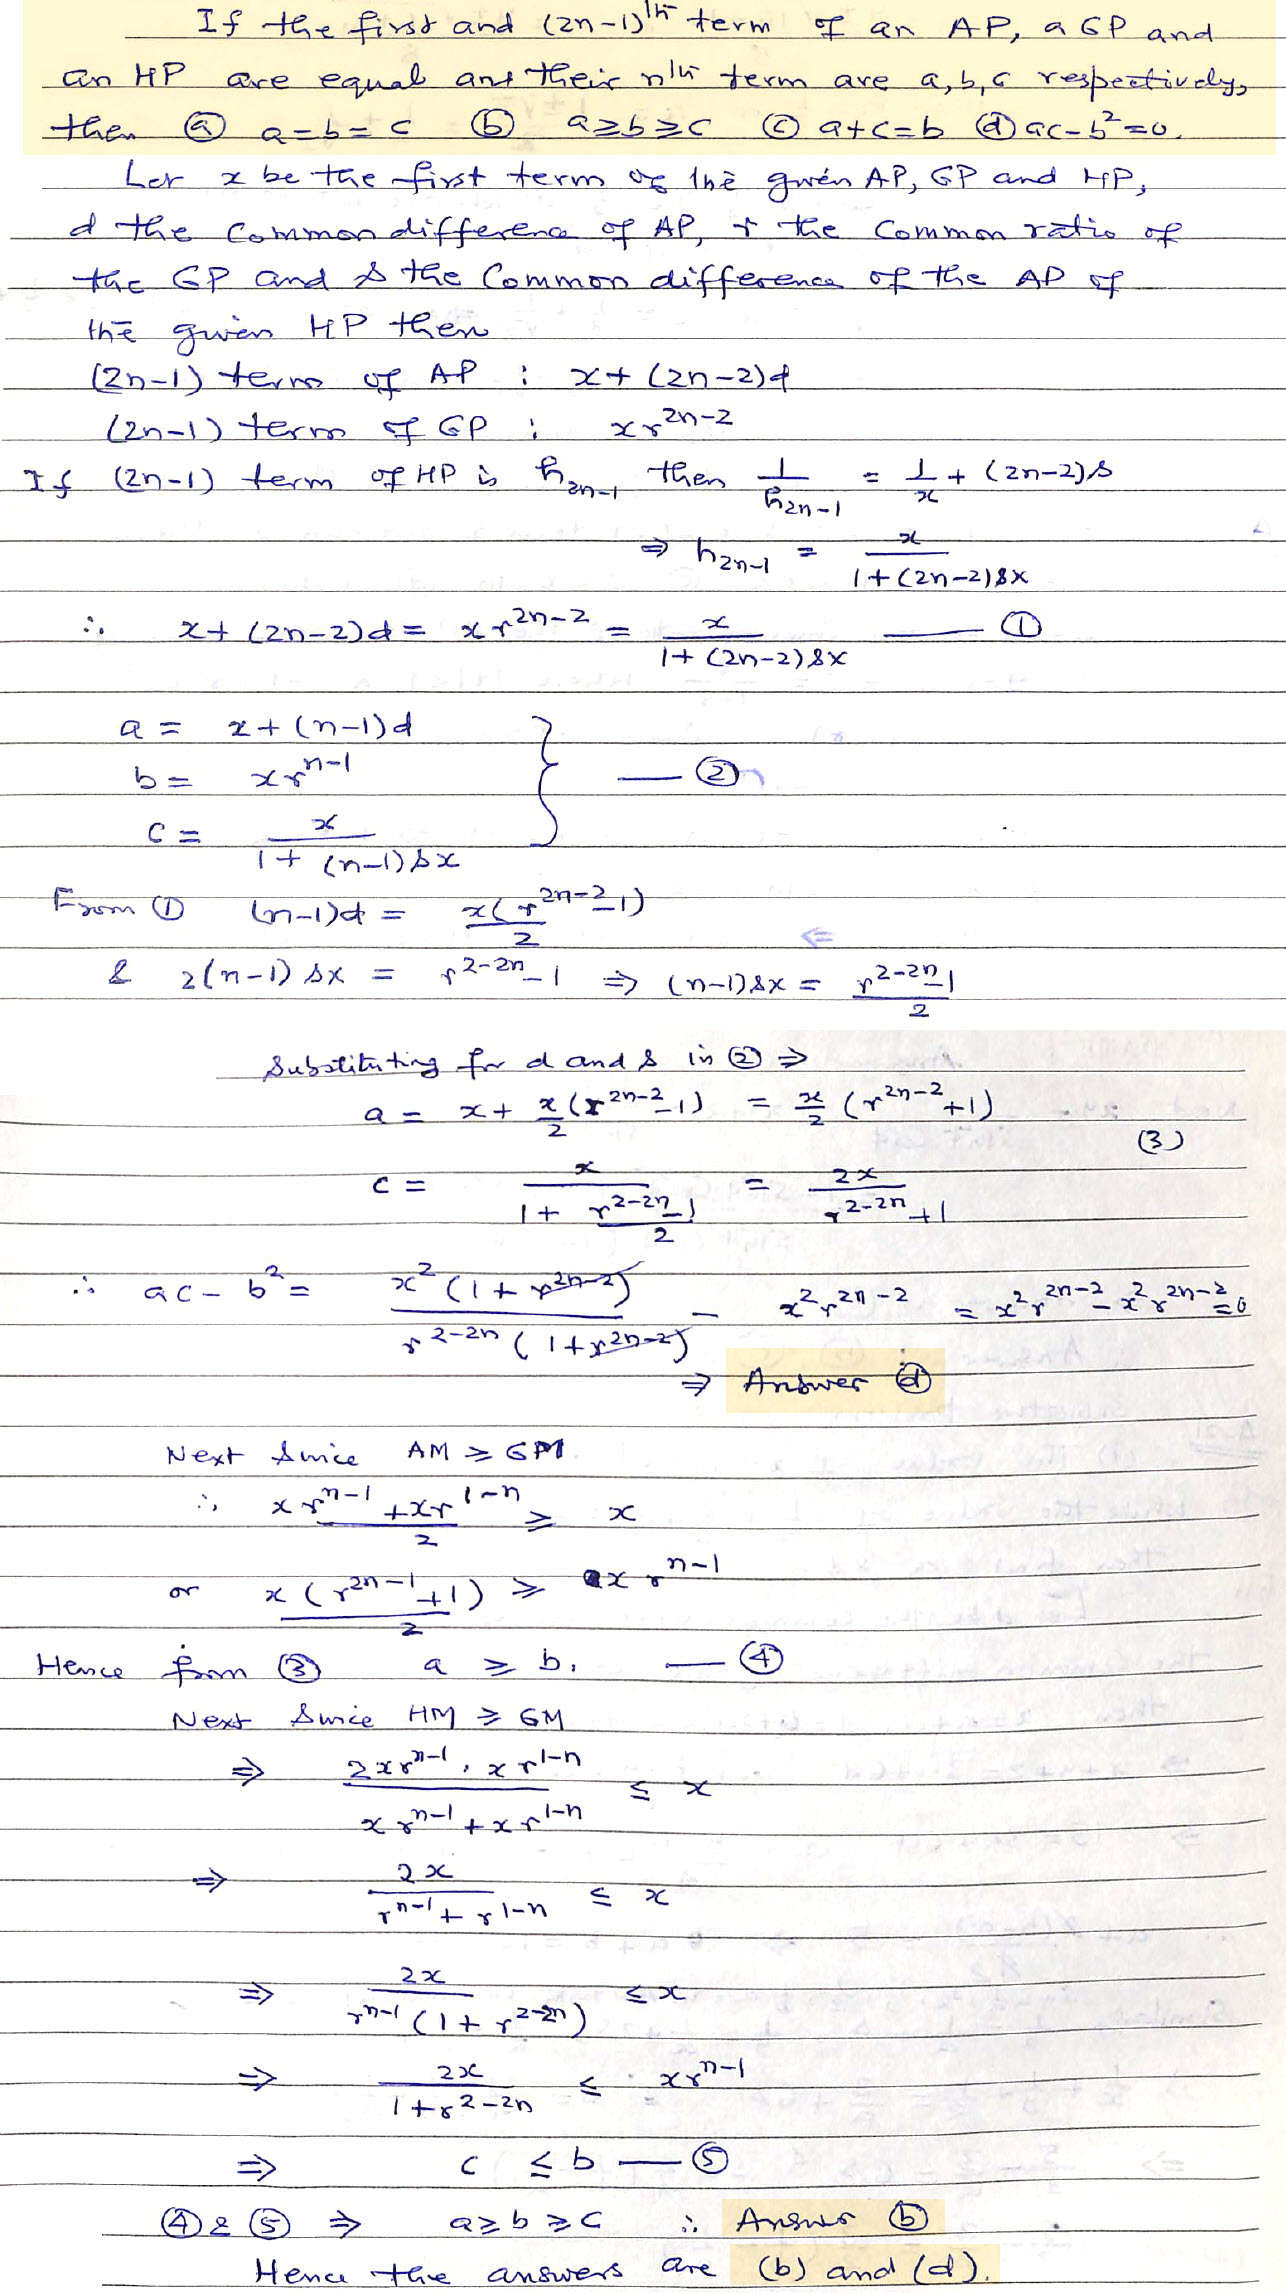 If the first and (2n-1)th term of an AP, a GP and
an HP are equal and their nth term are a, b, c respectively,
then (a) a=b=c (b) a≥b≥c (c) a+c=b (d) ac-b²=0.
Let x be the first term of the given AP, GP and HP,
d the common difference of AP, r the common ratio of
the GP and s the Common difference of the AP of
the given HP then
(2n-1) term of AP : x+(2n-2)d
(2n-1) term of GP : xr^{2n-2}
If (2n-1) term of HP is h_{2n-1} then 1/h_{2n-1} = 1/x + (2n-2)s
⇒ h_{2n-1} = x/(1+(2n-2)sx)
∴ x+(2n-2)d = xr^{2n-2} = x/(1+(2n-2)sx) —— ①
a = x+(n-1)d
b = xr^{n-1} —— ②
c = x/(1+(n-1)sx)
From ① (n-1)d = x(r^{2n-2}-1)/2
& 2(n-1)sx = r^{2-2n}-1 ⇒ (n-1)sx = (r^{2-2n}-1)/2
Substituting for d and s in ② ⇒
a = x + x/2 (r^{2n-2}-1) = x/2 (r^{2n-2}+1)
(3)
c = x/(1+(r^{2-2n}-1)/2) = 2x/(r^{2-2n}+1)
∴ ac-b² = x²(1+r^{2n-2})/(r^{2-2n}(1+r^{2n-2})) - x²r^{2n-2} = x²r^{2n-2}-x²r^{2n-2}=0
⇒ Answer (d)
Next since AM ≥ GM
∴ (xr^{n-1}+xr^{1-n})/2 ≥ x
or x(r^{2n-1}+1)/2 ≥ xr^{n-1}
Hence from ③ a ≥ b. — ④
Next since HM ≥ GM
⇒ (2xr^{n-1}.xr^{1-n})/(xr^{n-1}+xr^{1-n}) ≤ x
⇒ 2x/(r^{n-1}+r^{1-n}) ≤ x
⇒ 2x/(r^{n-1}(1+r^{2-2n})) ≤ x
⇒ 2x/(1+r^{2-2n}) ≤ xr^{n-1}
⇒ c ≤ b — ⑤
④ & ⑤ ⇒ a≥b≥c ∴ Answer (b)
Hence the answers are (b) and (d).